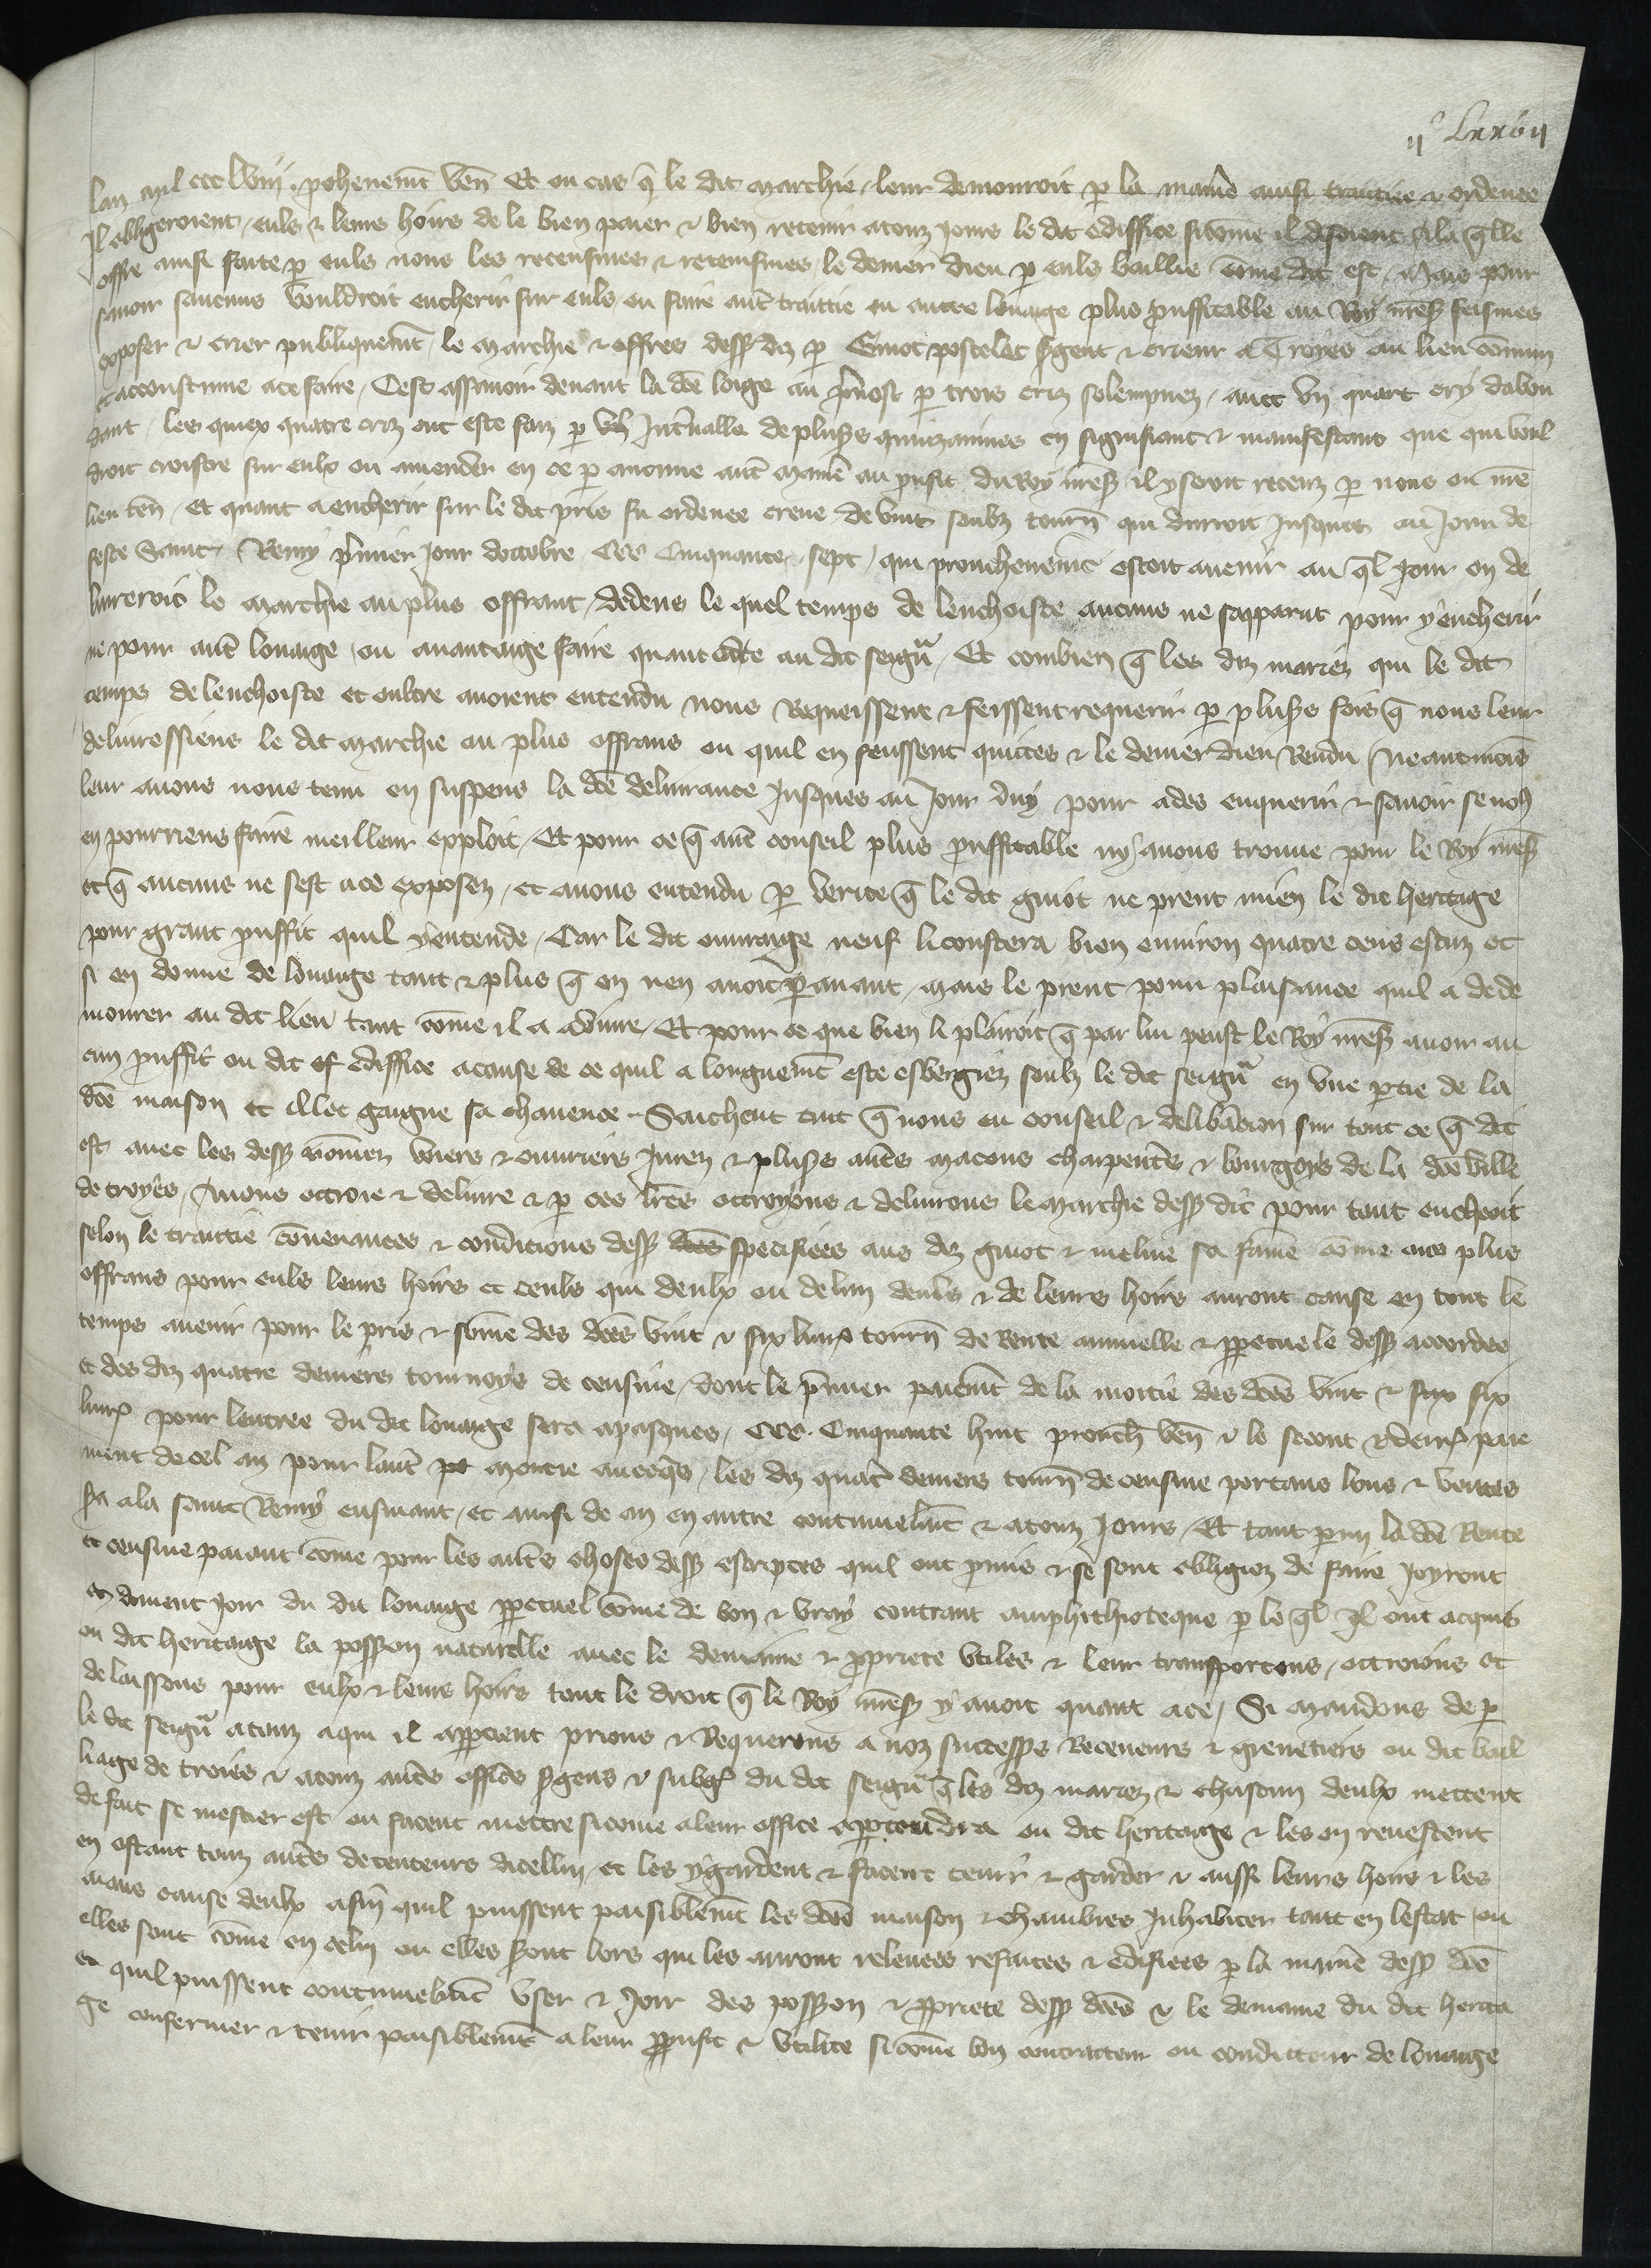 iiᶜ Lxxvii
lan mil ccc lviii. p̄chenem̄t ven̄ Et ou cas q̄ le dit marchie leur demouroit p la manie᷑ ainsi traittiee & ordenee
Il obligeroient euls & leurs hoirs de le bien paier & bien retenir a touz jours le dit ediffice sicōme il disoient A la q̄lle
offre ainsi faite p euls nous les receusmes & retenismes le denier dieu p euls baillie cōme dit est Mais pour
savoir saucuns vouldroit encherir sur euls ou faire aut᷑ traittie ou autre louaige plus ꝓuffitable au Roy mess̄ feismes
exposer & crier publiquem̄t le marchie & offres dess᷒ diz p Guiot postelet s᷑gent & crieur a Troyes au lieu cōmun
& accoustume a ce faire Cest assavoir devant la dc̄e loige au p᷑vost p trois criz solempnez avec un quart cry dabon
dant les quiex quatre criz ont este faiz p Int᷑valle de plus᷒s quinzainnes en signifiant & manifestant que qui voul
droit croistre sur eulx ou amender en ce p aucune aut᷑ manie᷑ au ꝓufit du Roy mess̄ il y seroit receuz p nous ou n᷑re
lieu ten̄ Et quant a encherir sur le dit pris fu ordenee creue de vint soubz tourn̄ qui durroit Jusques au jour de
feste Saint Remy p᷑mier jour doctobre CCC Cinquante sept qui prouchenem̄t estoit avenir au q̄l jour on de
livreroit le marchie au plus offrant dedens le quel temps de lenchoiste aucuns ne sapparut pour y encherir
ne pour aut᷑ louaige ou avantaige faire quant ad ce au dit seigñ Et combien q̄ les diz mariez qui le dit
temps de lenchoiste et oultre avoient entendu nous Requeissent & feissent requerir p plus᷒s fois q̄ nous leur
delivressiens le dit marchie ou plus offrans ou quil en feussent quittes & le denier dieu Rendu neantmoins
leur avons nous tenu en suspens la dc̄e delivrance Jusques au jour duy pour ades enquerir & savoir se nous
en pourriens faire meilleur exploit Et pour ce q̄ aut᷑ conseil plus ꝓuffitable ny avons trouve pour le Roy mess̄
et q̄ aucuns ne sest a ce exposez et avons entendu p verite q̄ le dit guiot ne prent mien le dit heritage
pour grant ꝓuffit quil y entende Car le dit ouvraige neuf li coustera bien environ quatre cens escuz et
si en donne de louaige tant & plus q̄ on nen avoit p avant mais le prent pour plaisance quil a de de
mourer au dit lieu tant cōme il a a vivre Et pour ce que bien li plairoit q̄ par lui peust le Roy mess̄ avoir au
cun ꝓuffit ou dit ediffice a cause de ce quil a longuem̄t este esbergiez soubz le dit seigñ en une ptie de la
dc̄e maison et illec gaigne sa chavence Saichent tuit q̄ nous eu conseil & delib᷑acion sur tout ce q̄ dit
est avec les dess᷒ nōmez voiers & ouvriers Jurez & plus᷒s aut᷑s macons charpent᷑s & bourgoys de la dc̄e ville
de troyes Avons ottroie & delivre & p ces lr̄es ottroyons & delivrons le marchie dess᷒ dit pour tant encheoit
selon le traittie cōvenances & condicions dess᷒ specifiees aus diz guiot & meline sa fame cōme aus plus
offrans pour euls leurs hoirs et ceuls qui deulx ou de lun deuls & de leurs hoirs auront cause en tout le
temps avenir pour le pris & sōme des dc̄es vint & six livr᷑ tourn̄ de Rente annuelle & ppetuele dess᷒ accordee
et des diz quatre deniers tournoys de censive dont le p᷑mier paiem̄t de la moitie des dc̄es vint & six
livr᷑ pour lentree du dit louaige sera a pasques CCC Cinquante huit prouch̄ ven̄ & le secont & derr᷑ paie
ment de cel an pour laut᷑ moitie avecq̄s les diz quat᷑ deniers tourn̄ de censive portans lous & ventes
s᷑a a la saint Remy ensuiant et ainsi de an en autre continuelm̄t & a touz jours Et tant pmi la dc̄e Rente
et censive paiant cōme pour les aut᷑s choses dess᷒ escriptes quil ont ꝓmis & se sont obligiez de faire Joyront
& doivent joir du dit louaige ppetuel cōme de bon & vray contraut amphithioteque p le q̄l Il ont acquis
ou dit heritaige la poss᷒on naturelle avec le demaine & ꝓpriete utiles & leur transportons ottroions et
delaissons pour eulx & leurs hoirs tout le droit q̄ le Roy mess̄ y avoit quant a ce Si mandons de p
le dit seigñ a touz a qui il apptient prions & Requerons a noz success᷒s Receveurs & grenetiers ou dit bail
liage de troies & a touz aut᷑s offic᷑s s᷑gens & subg᷑ du dit seigñ q̄ les diz mariez & chascun deulx mettent
de fait se mestier est ou facent mettre sicōme a leur office apptendra ou dit heritaige & les en revestent
en ostant touz aut᷑s detenteurs dicelluy et les y gardent & facent tenir & garder & aussi leurs hoirs & les
aians cause deulx afin quil puissent paisiblem̄t les dc̄es maison & chambres Inhabiter tant en lestat ou
elles sont cōme en celui ou elles s᷑ont lors qui les auront relevees refaites & edifiees p la manie᷑ dess᷒ dc̄e
et quil puissent continuelm̄t user & joir des poss᷒on & ꝓpriete dess᷒ dc̄es & le demaine du dit herita
ge confermer & tenir paisiblem̄t a leur ꝓufit & utilite sicōme bon contracteur ou conducteur de louaige